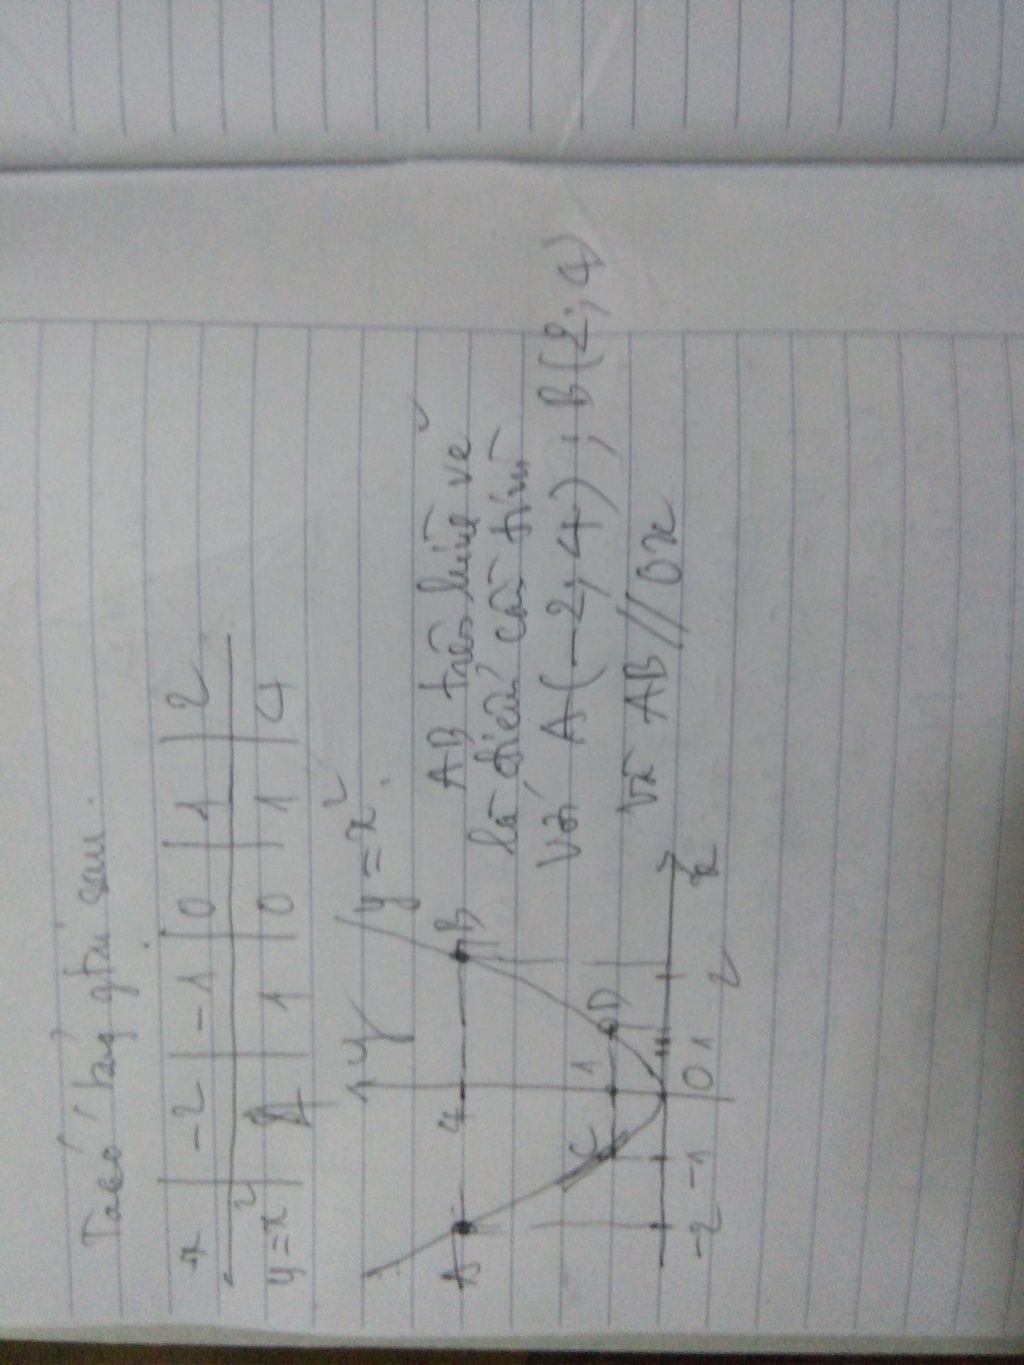 Ta có bảng giá trị sau.
x -2 -1 0 1 2
y = x² 4 1 0 1 4
y
y = x²
A 4 B
C 1 D
-2 -1 0 1 2 x
AB trên hình vẽ
là điểm cần tìm
Với A(-2; 4); B(2; 4)
và AB // Ox